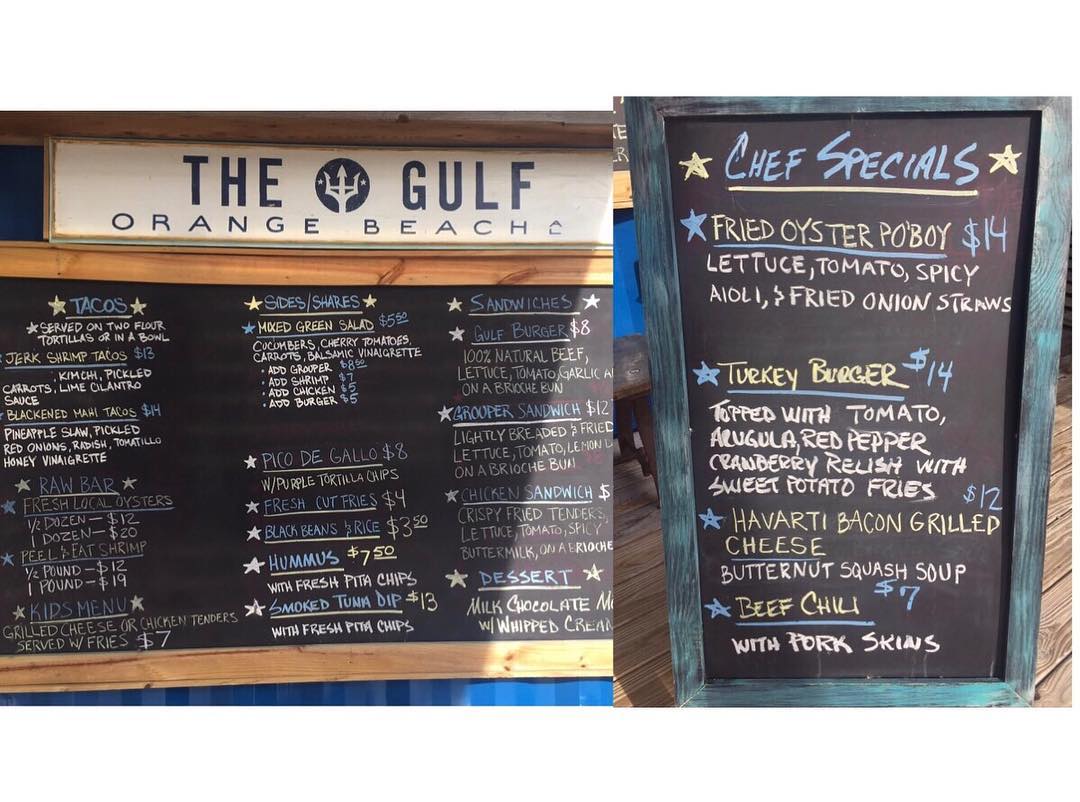 THE GULF
ORANGE BEACH
TACOS
SERVED ON TWO FLOUR
TORTILLAS OR IN A BOWL
JERK SHRIMP TACOS $13
KIMCHI, PICKLED
CARROTS, LIME CILANTRO
SAUCE
BLACKENED MAHI TACOS $14
PINEAPPLE SLAW, PICKLED
RED ONIONS, RADISH, TOMATILLO
HONEY VINAIGRETTE
RAW BAR
FRESH LOCAL OYSTERS
1/2 DOZEN — $12
1 DOZEN — $20
PEEL & EAT SHRIMP
1/2 POUND — $12
1 POUND — $19
KIDS MENU
GRILLED CHEESE OR CHICKEN TENDERS
SERVED W/ FRIES $7
SIDES/SHARES
MIXED GREEN SALAD $5.50
CUCUMBERS, CHERRY TOMATOES,
CARROTS, BALSAMIC VINAIGRETTE
· ADD GROUPER $8.50
· ADD SHRIMP $7
· ADD CHICKEN $5
· ADD BURGER $5
PICO DE GALLO $8
W/PURPLE TORTILLA CHIPS
FRESH CUT FRIES $4
BLACK BEANS & RICE $3.50
HUMMUS $7.50
WITH FRESH PITA CHIPS
SMOKED TUNA DIP $13
WITH FRESH PITA CHIPS
SANDWICHES
GULF BURGER $8
100% NATURAL BEEF,
LETTUCE, TOMATO, GARLIC
ON A BRIOCHE BUN
GROUPER SANDWICH $12
LIGHTLY BREADED & FRIED
LETTUCE, TOMATO, LEMON
ON A BRIOCHE BUN
CHICKEN SANDWICH $
CRISPY FRIED TENDERS,
LETTUCE, TOMATO, SPICY
BUTTERMILK, ON A BRIOCHE
DESSERT
MILK CHOCOLATE
W/ WHIPPED CREAM
CHEF SPECIALS
FRIED OYSTER PO'BOY $14
LETTUCE, TOMATO, SPICY
AIOLI, & FRIED ONION STRAWS
TURKEY BURGER $14
TOPPED WITH TOMATO,
ARUGULA, RED PEPPER
CRANBERRY RELISH WITH
SWEET POTATO FRIES
$12
HAVARTI BACON GRILLED
CHEESE
BUTTERNUT SQUASH SOUP
BEEF CHILI $7
WITH PORK SKINS